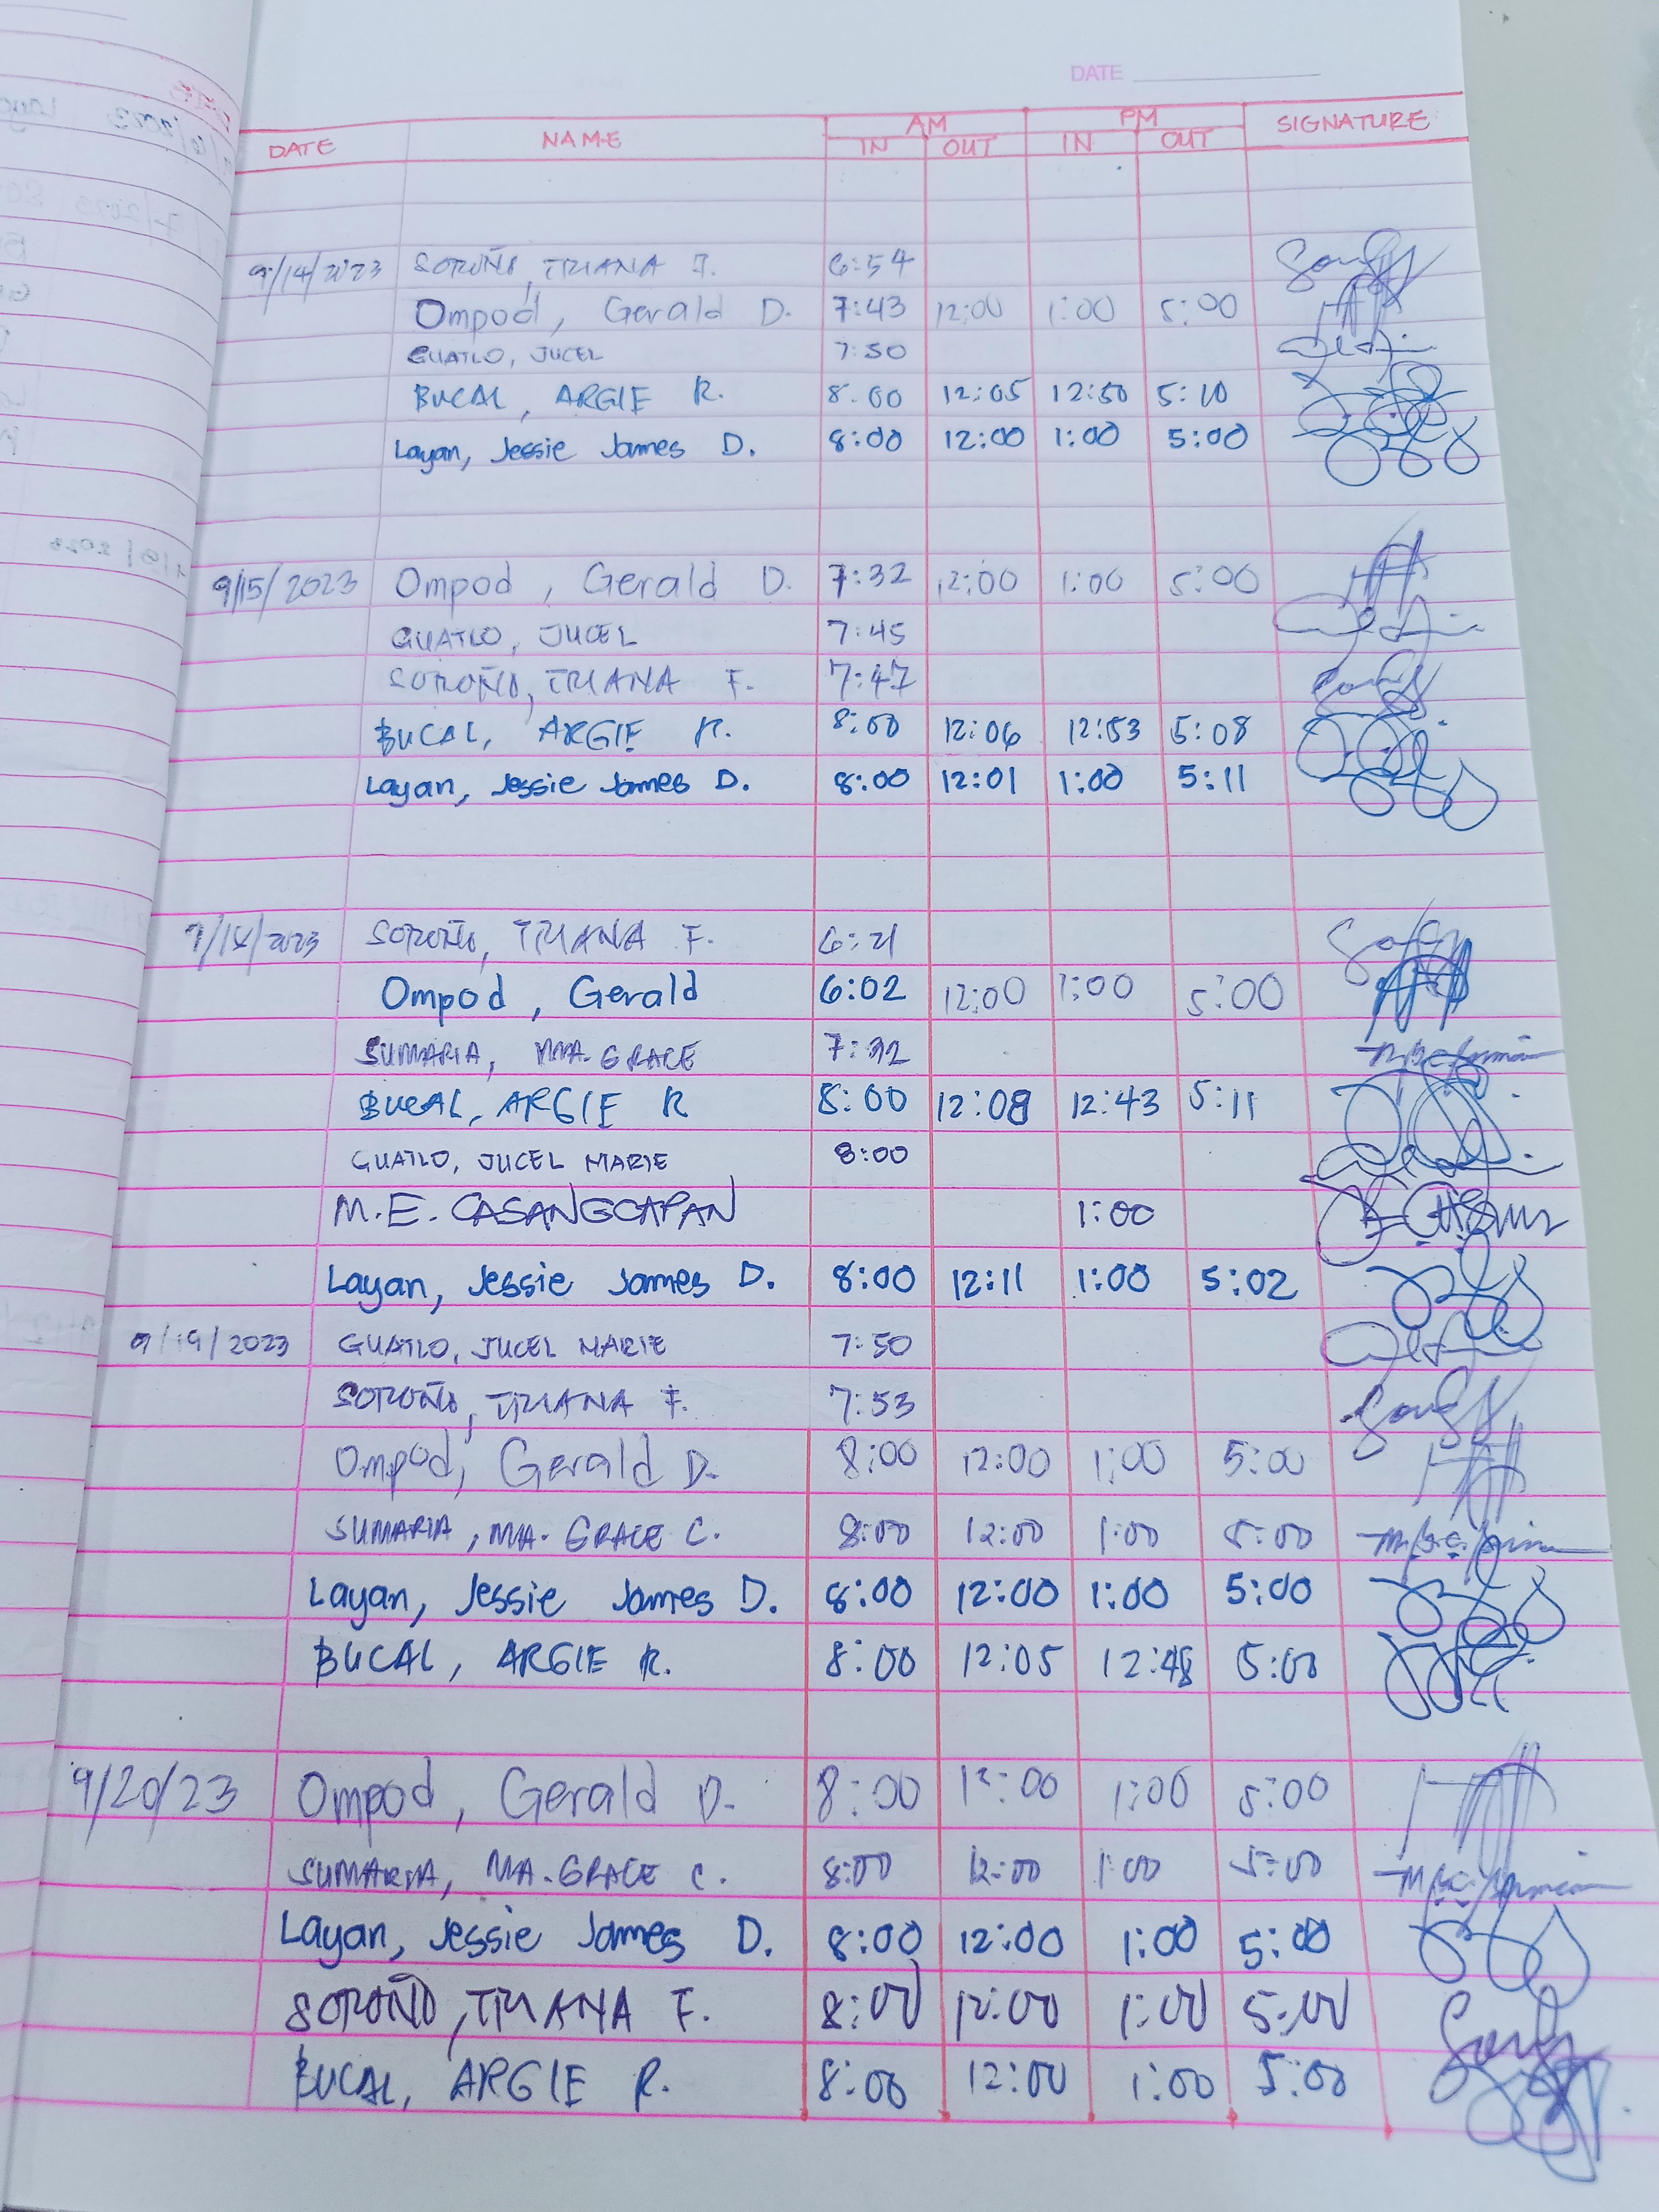 DATE
AM PM
DATE NAME IN OUT IN OUT SIGNATURE
9/14/2023 SOROÑO, TRIANA F. 6:54
Ompod, Gerald D. 7:43 12:00 1:00 5:00
GUATLO, JUCEL 7:50
BUCAL, ARGIE R. 8:00 12:05 12:50 5:10
Layan, Jessie James D. 8:00 12:00 1:00 5:00
9/15/2023 Ompod, Gerald D. 7:32 12:00 1:00 5:00
GUATLO, JUCEL 7:45
SOROÑO, TRIANA F. 7:47
BUCAL, ARGIE R. 8:00 12:06 12:53 5:08
Layan, Jessie James D. 8:00 12:01 1:00 5:11
SOROÑO, TRIANA F. 6:21
Ompod, Gerald 6:02 12:00 1:00 5:00
SUMARIA, MA. GRACE 7:32
BUCAL, ARGIE R 8:00 12:08 12:43 5:11
GUATLO, JUCEL MARIE 8:00
M.E. CASANGCAPAN 1:00
Layan, Jessie James D. 8:00 12:11 1:00 5:02
9/19/2023 GUATLO, JUCEL MARIE 7:50
SOROÑO, TRIANA F. 7:53
Ompod, Gerald D. 8:00 12:00 1:00 5:00
SUMARIA, MA. GRACE C. 8:00 12:00 1:00 5:00
Layan, Jessie James D. 8:00 12:00 1:00 5:00
BUCAL, ARGIE R. 8:00 12:05 12:48 5:00
9/20/23 Ompod, Gerald D. 8:00 12:00 1:00 5:00
SUMARIA, MA. GRACE C. 8:00 12:00 1:00 5:00
Layan, Jessie James D. 8:00 12:00 1:00 5:00
SOROÑO, TRIANA F. 8:00 12:00 1:00 5:00
BUCAL, ARGIE R. 8:00 12:00 1:00 5:00